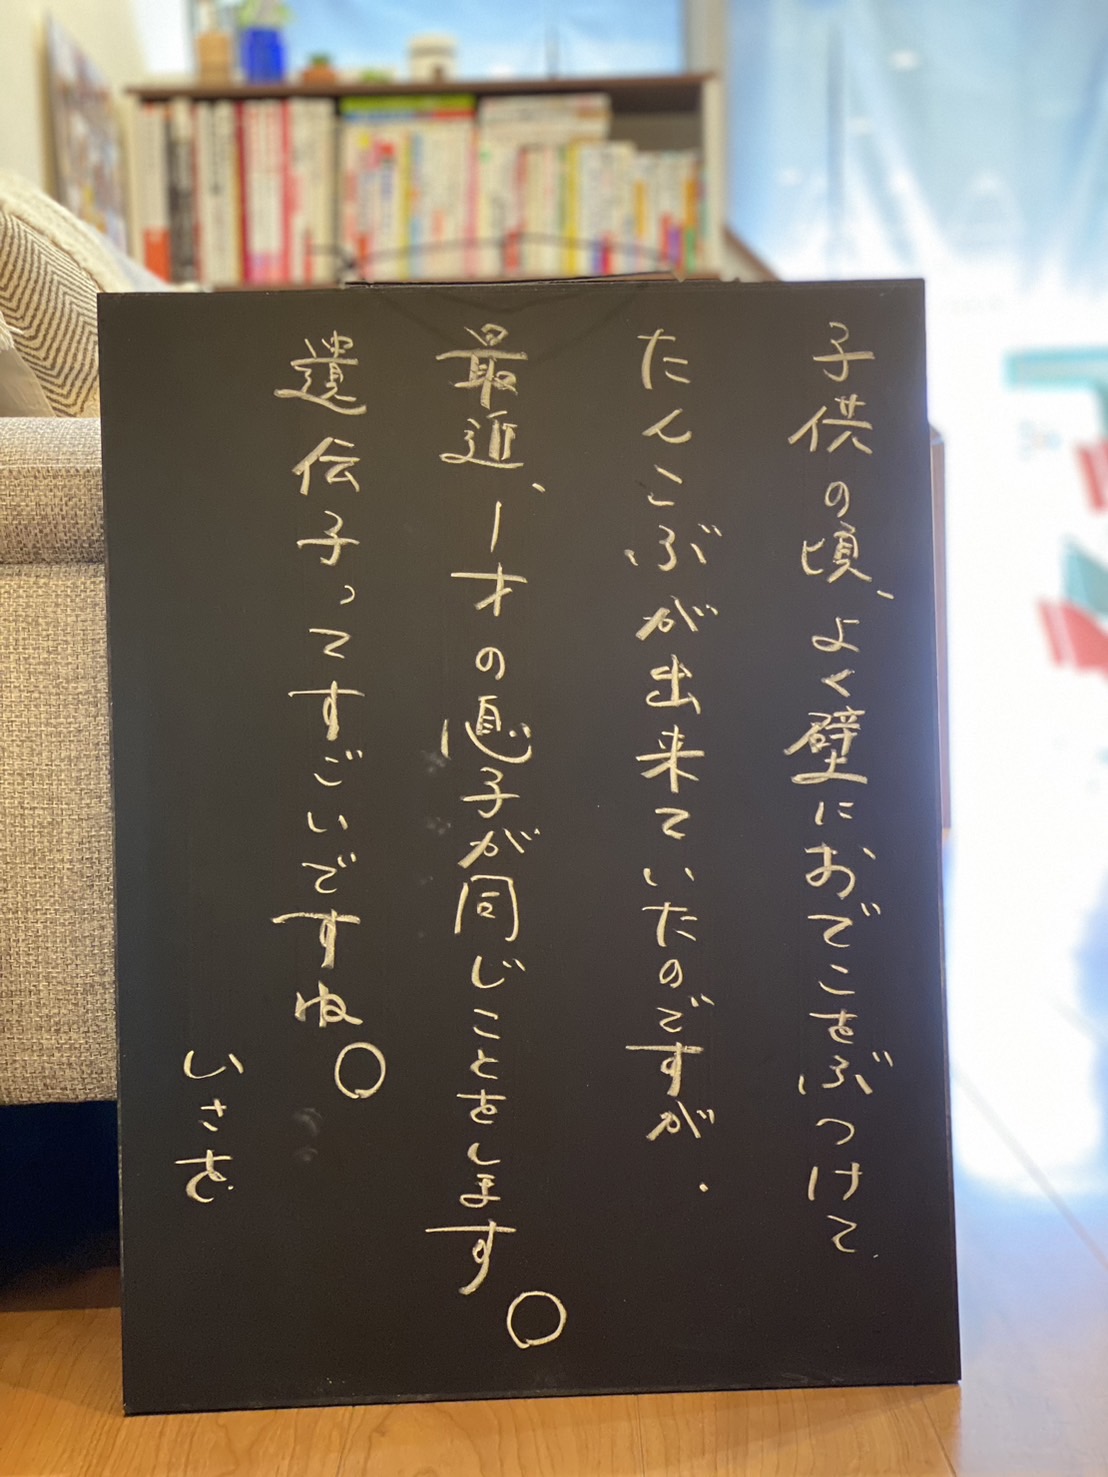 子供の頃、よく壁におでこをぶつけて、
たんこぶが出来ていたのですが、
最近、1才の息子が同じことをします。
遺伝子ってすごいですね。
いさを